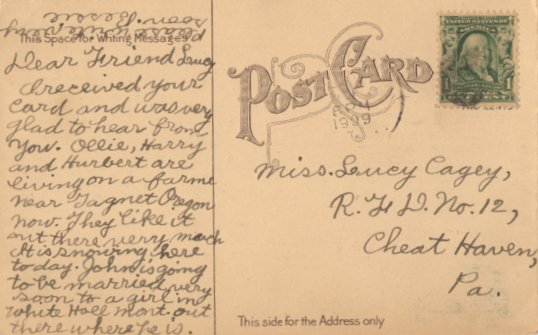 This Space for Writing Messages
Dear Friend Lucy
I received your
card and was very
glad to hear from
you. Ollie, Harry
and Hurbert are
living on a farme
near Tagnet Oregon
now. They like it
out there very much
It is snowing here
to day. John is going
to be married very
soon to a girl in
White Holl Mont. out
there where he is.
POST CARD
UNITED STATES OF
AMERICA
1
Miss. Lucy Cagey,
R. F. D. No. 12,
Cheat Haven,
Pa.
This side for the Address only